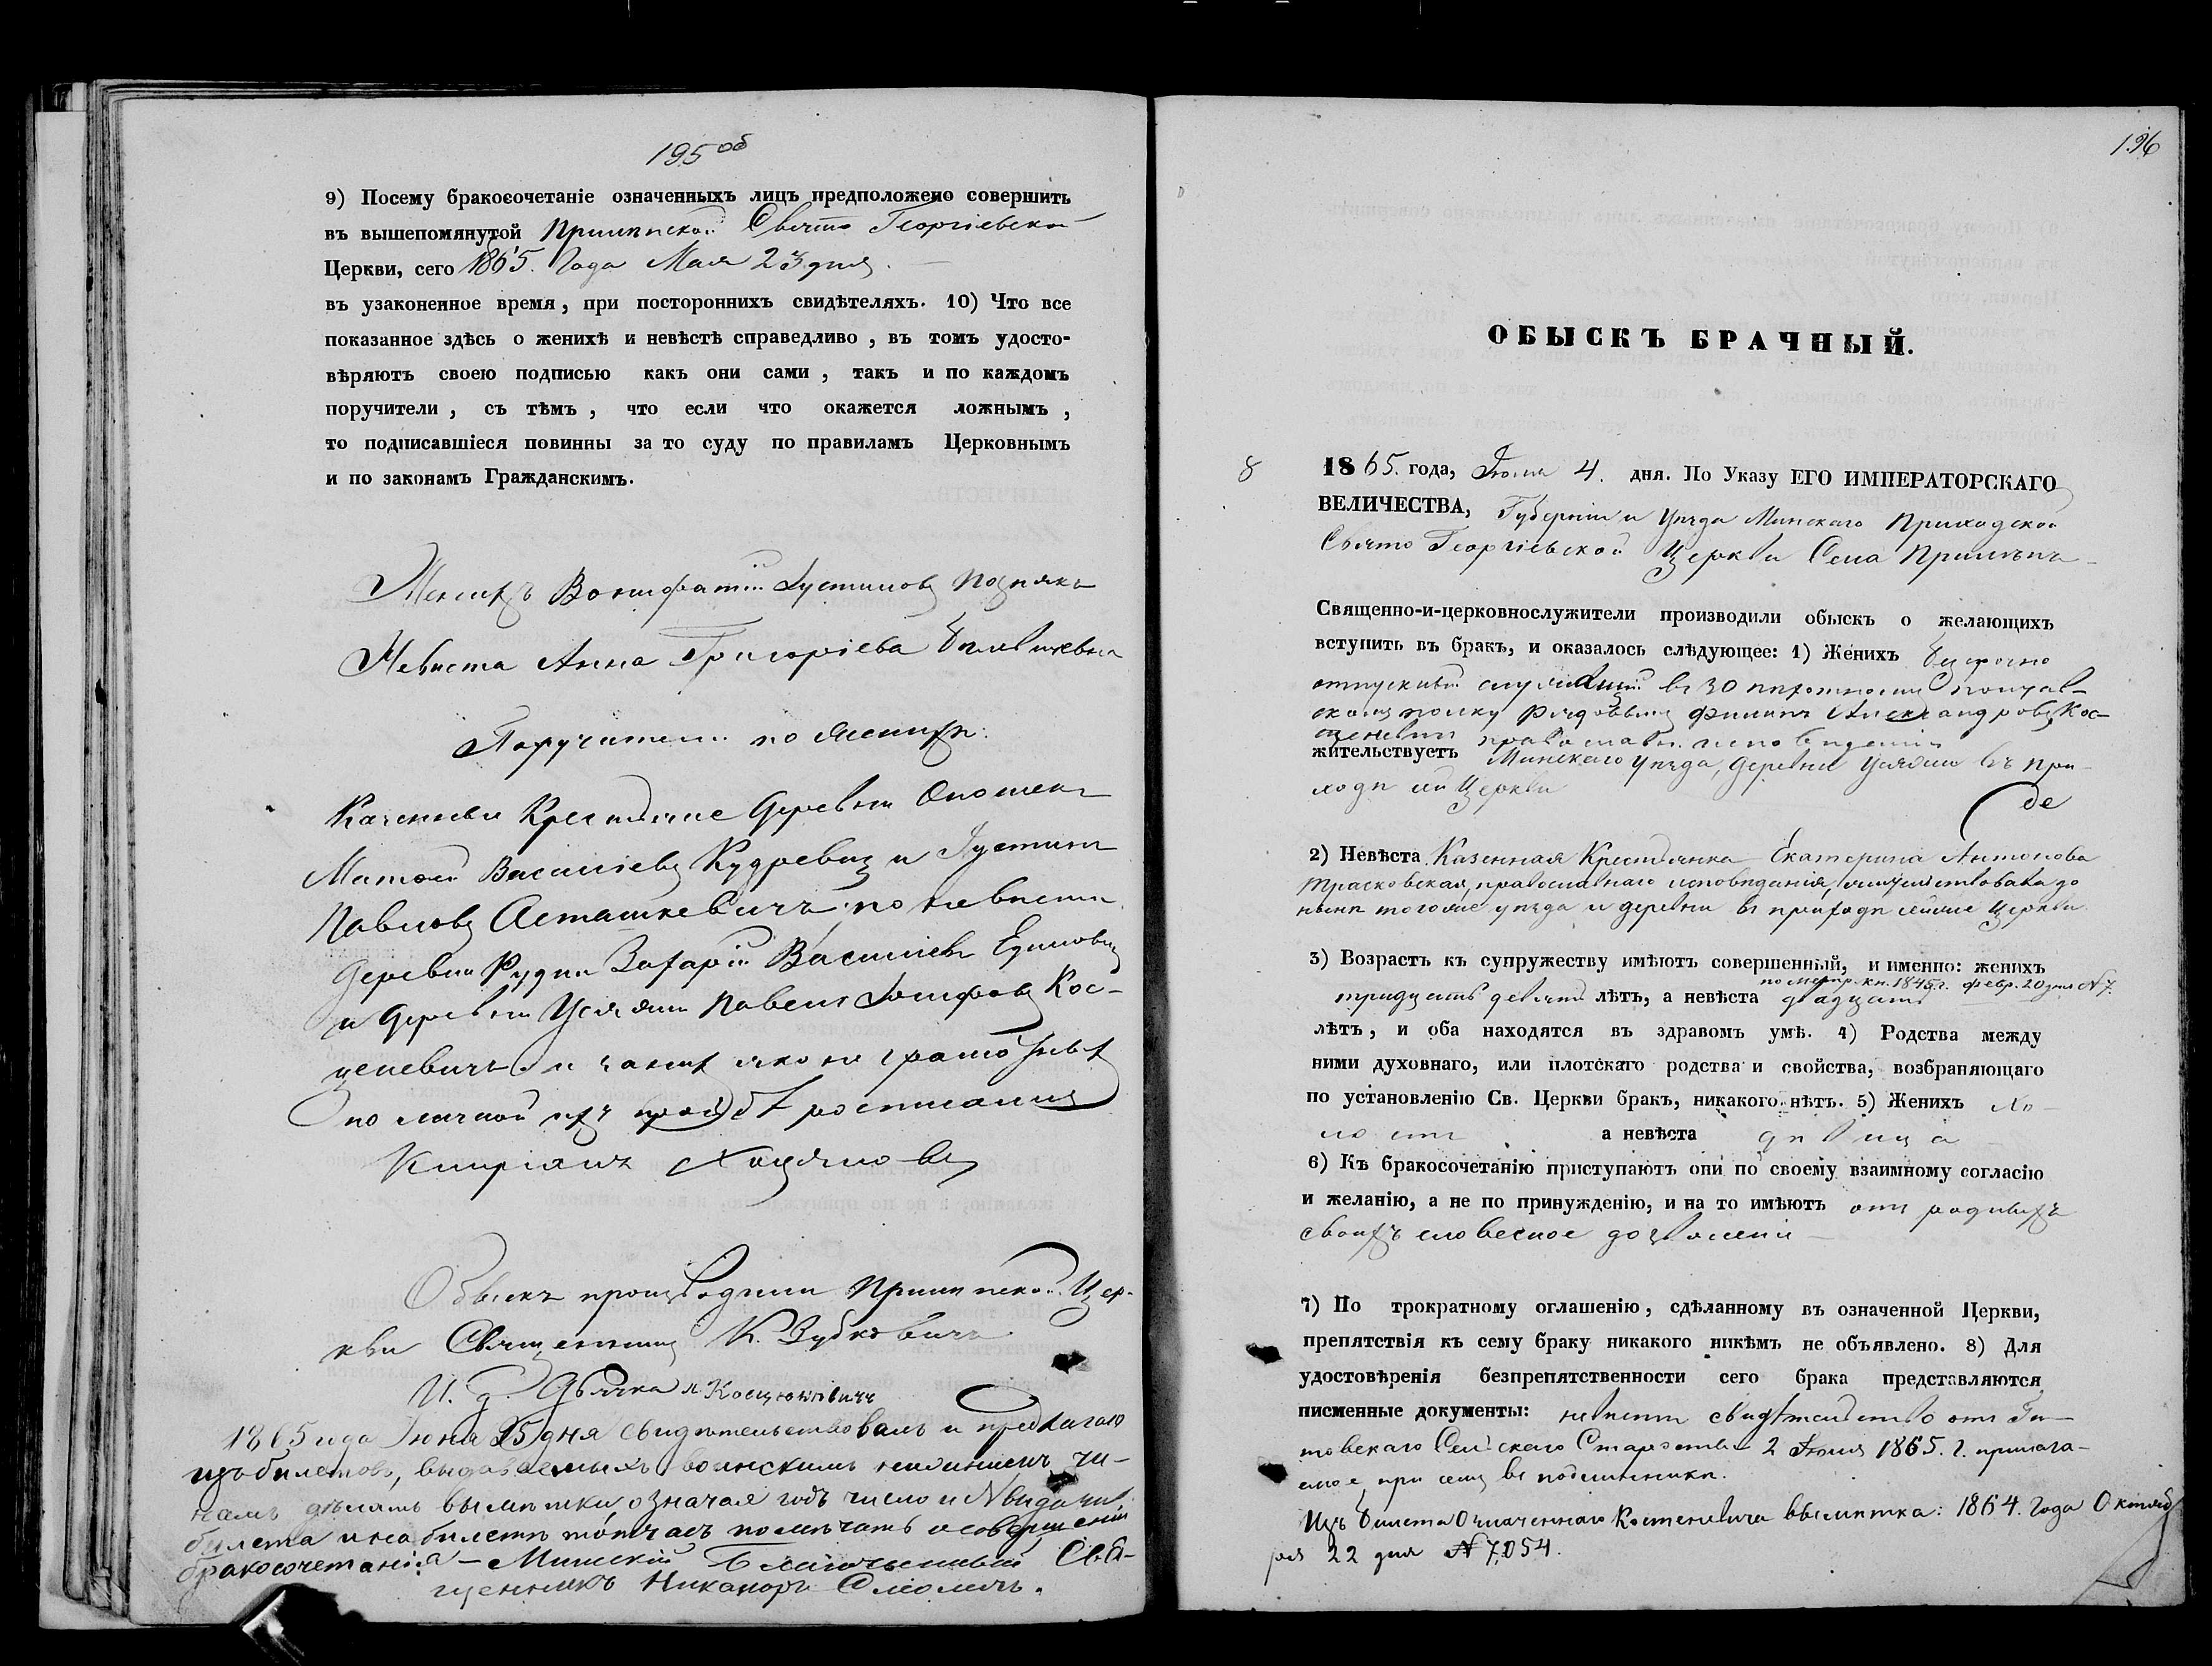 195 об
9) Посему бракосочетаніе означенныхъ лицъ предположено совершить
въ вышепомянутой Прилѣпской Свято Георгіевской
Церкви, сего 1865. Года Мая 23 дня.
въ узаконенное время, при постороннихъ свидѣтеляхъ. 10) Что все
показанное здѣсь о женихѣ и невѣстѣ справедливо, въ томъ удосто-
вѣряютъ своею подписью какъ они сами, такъ и по каждомъ
поручители, съ тѣмъ, что если что окажется ложнымъ,
то подписавшіеся повинны за то суду по правиламъ Церковнымъ
и по законамъ Гражданскимъ.
Женихъ Вонифатій Іустиновъ Познякъ
Невѣста Анна Григоріева
Поручители по женихѣ:
Казенные Крестьяне Деревни
Матѳей Василіевъ Кудревич и Іустинъ
Павловъ Асташкевичъ, по невѣстѣ
Деревни Рудни Захарій Василіевъ
и Деревни Усяжи Павелъ Іосифовъ Кос-
цевичъ и
по личной ихъ просьбѣ росписался
Кипріянъ
Обыскъ производили Прилѣпской Цер-
кви Священникъ К. Зубковичъ
И. д. Дьячка
1865 года Іюня 25 дня свидѣтельствовалъ и предлагаю
изъ билетовъ, выдаваемыхъ воинскимъ нижнимъ чи-
намъ дѣлать вымѣтки означая годъ число и № видачи
билета и на билетѣ тотчасъ помѣчать о совершеніи
бракосочетанія – Минскій Благочинный Свя-
щенникъ Никаноръ Смоличъ.
196
ОБЫСКЪ БРАЧНЫЙ.
8
1865. года, Іюня 4. дня. По Указу ЕГО ИМПЕРАТОРСКАГО
ВЕЛИЧЕСТВА, Губерніи и Уѣзда Минскаго Приходской
Свято Георгіевской Церкви Села Прилѣпъ
Священно-и-церковнослужители производили обыскъ о желающихъ
вступить въ бракъ, и оказалось слѣдующее: 1) Женихъ безсрочно
отпускной служившій въ 30 пѣхотномъ Полтав-
скомъ полку Рядовый Филипъ Александровъ Кос-
православн. исповѣданія
жительствуетъ Минскаго уѣзда, деревни Усяжи въ при-
ходѣ сей Церкви
2) Невѣста Казенная Крестьянка Екатерина Антонова
Трасковская, православнаго исповѣданія, жительствовала до
нынѣ тогоже уѣзда и деревни въ приходѣ сейже Церкви
3) Возрастъ къ супружеству имѣютъ совершенный, и именно: женихъ
по метр. кн. 1845 г. февр. 20 дня № 7.
тридцать девять лѣтъ, а невѣста двадцать
лѣтъ, и оба находятся въ здравомъ умѣ. 4) Родства между
ними духовнаго, или плотскаго родства и свойства, возбраняющаго
по установленію Св. Церкви бракъ, никакого нѣтъ. 5) Женихъ хо-
лостъ а невѣста дѣвица
6) Къ бракосочетанію приступаютъ они по своему взаимному согласію
и желанію, а не по принужденію, и на то имѣютъ отъ родныхъ
своихъ словесное дозволеніе
7) По трократному оглашенію, сдѣланному въ означенной Церкви,
препятствія къ сему браку никакого никѣмъ не объявлено. 8) Для
удостовѣренія безпрепятственности сего брака представляются
писменные документы: невѣсты свидѣтельство отъ Ги-
товскаго Сельскаго Староства 2 Іюня 1865. г. прилага-
емое при семъ въ подлинникѣ.
Изъ билета Означеннаго Костеневича вымѣтка: 1864. Года Октяб
ря 22 дня № 7,054.